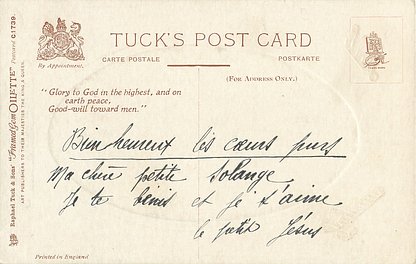 TUCK'S POST CARD
CARTE POSTALE
POSTKARTE
(FOR ADDRESS ONLY.)
By Appointment.
"Glory to God in the highest, and on
earth peace,
Good-will toward men."
Bien heureux les cœurs purs
Ma chère petite Solange
Je te bénis et je t'aime
le petit Jésus
Raphael Tuck & Sons' "Framed Gem OILETTE" Postcard C 1739.
ART PUBLISHERS TO THEIR MAJESTIES THE KING & QUEEN.
Printed in England